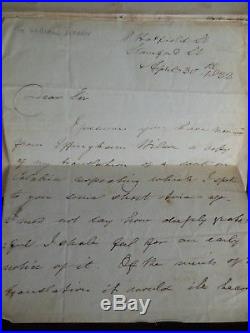 Hatfield St
Stamford St
April 30th
Dear Sir
I presume you have received
from Effingham Wilson a copy
of my translation of a work on
respecting which I spoke
to you some short time ago.
I need not say how deeply grate
ful I shall feel for an early
notice of it. Of the merits of
translation it would ill